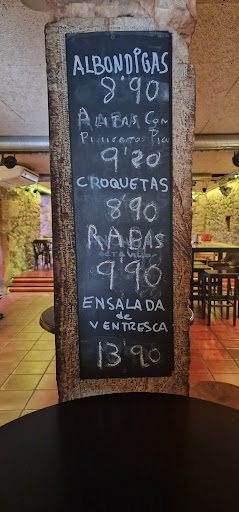 ALBONDIGAS
8'90
ALITAS CON
9'20
CROQUETAS
8'90
RABAS
9'90
ENSALADA
de
VENTRESCA
13'90